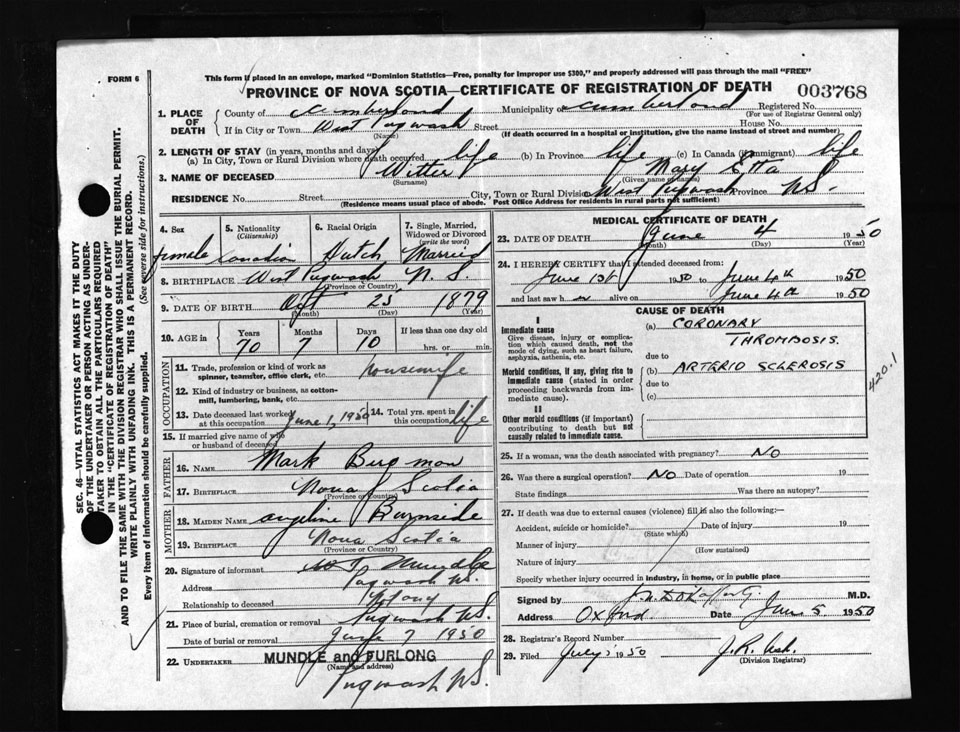 FORM 6
This form if placed in an envelope, marked "Dominion Statistics—Free, penalty for improper use $300," and properly addressed will pass through the mail "FREE"
PROVINCE OF NOVA SCOTIA—CERTIFICATE OF REGISTRATION OF DEATH
003768
1. PLACE OF DEATH
County of Cumberland Municipality of Cumberland Registered No.
(For use of Registrar General only)
If in City or Town West Pugwash Street House No.
(Name) (If death occurred in a hospital or institution, give the name instead of street and number)
2. LENGTH OF STAY (in years, months and days)
(a) In City, Town or Rural Division where death occurred life (b) In Province life (c) In Canada (if immigrant) life
3. NAME OF DECEASED Witter Mary Etta
(Surname) (Given name or names)
RESIDENCE No. Street City, Town or Rural Division West Pugwash Province N.S.
(Residence means usual place of abode. Post Office Address for residents in rural parts not sufficient)
4. Sex female
5. Nationality (Citizenship) Canadian
6. Racial Origin Dutch
7. Single, Married, Widowed or Divorced (write the word) Married
8. BIRTHPLACE West Pugwash N. S.
(Province or Country)
9. DATE OF BIRTH Oct 25 1879
(Month) (Day) (Year)
10. AGE in Years Months Days If less than one day old
70 7 10 hrs. or min.
OCCUPATION
11. Trade, profession or kind of work as spinner, teamster, office clerk, etc. Housewife
12. Kind of industry or business, as cotton-mill, lumbering, bank, etc.
13. Date deceased last worked at this occupation June 1, 1950 14. Total yrs. spent in this occupation life
15. If married give name of wife or husband of deceased
FATHER
16. NAME Mark
17. BIRTHPLACE Nova Scotia
(Province or Country)
MOTHER
18. MAIDEN NAME Angeline Burnside
19. BIRTHPLACE Nova Scotia
(Province or Country)
20. Signature of informant Mundle
Address Pugwash N.S.
Relationship to deceased
21. Place of burial, cremation or removal Pugwash N.S.
Date of burial or removal June 7 1950
22. UNDERTAKER MUNDLE and FURLONG
(Name and address)
Pugwash N.S.
MEDICAL CERTIFICATE OF DEATH
23. DATE OF DEATH June 4 1950
(Month) (Day) (Year)
24. I HEREBY CERTIFY that I attended deceased from:
June 1st 1950 to June 4th 1950
and last saw h er alive on June 4th 1950
CAUSE OF DEATH
I
Immediate cause
Give disease, injury or complication which caused death, not the mode of dying, such as heart failure, asphyxia, asthenia, etc.
(a) CORONARY THROMBOSIS.
due to
Morbid conditions, if any, giving rise to immediate cause (stated in order proceeding backwards from immediate cause).
(b) ARTERIO SCLEROSIS
due to
(c)
420.1
II
Other morbid conditions (if important) contributing to death but not causally related to immediate cause.
25. If a woman, was the death associated with pregnancy? No
26. Was there a surgical operation? No Date of operation 19
State findings Was there an autopsy?
27. If death was due to external causes (violence) fill in also the following:—
Accident, suicide or homicide? Date of injury 19
(State which)
Manner of injury
(How sustained)
Nature of injury
Specify whether injury occurred in industry, in home, or in public place
Signed by M.D.
Address Oxford. Date June 5 1950
28. Registrar's Record Number
29. Filed July 1950
(Division Registrar)
SEC. 46—VITAL STATISTICS ACT MAKES IT THE DUTY
OF THE UNDERTAKER OR PERSON ACTING AS UNDER-
TAKER TO OBTAIN ALL THE PARTICULARS REQUIRED
IN THE "CERTIFICATE OF REGISTRATION OF DEATH"
AND TO FILE THE SAME WITH THE DIVISION REGISTRAR WHO SHALL ISSUE THE BURIAL PERMIT.
WRITE PLAINLY WITH UNFADING INK. THIS IS A PERMANENT RECORD.
Every item of information should be carefully supplied. (See reverse side for instructions.)